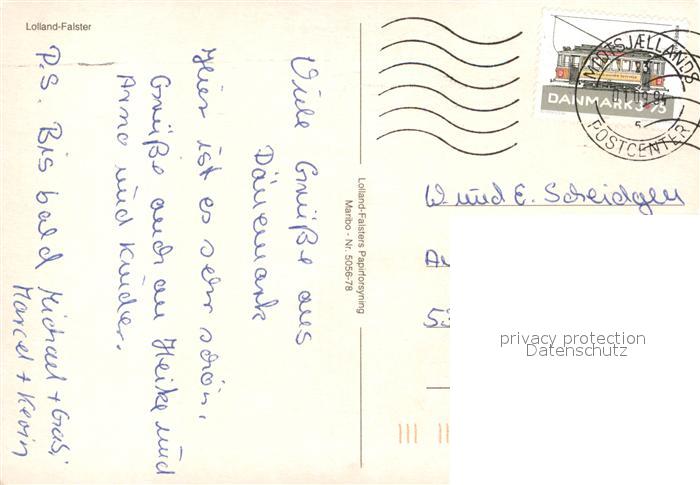 Lolland-Falster
Viele Grüße aus
Dänemark
Hier ist es sehr schön.
Grüße auch an Heike und
Arno und Kinder.
P.S. Bis bald Michael + Gabi
Marcel + Kevin
Lolland-Falsters Papirforsyning
Maribo - Nr. 5056-78
DANMARK 3.75
MIDTSJÆLLANDS
POSTCENTER
W und E. Scheidgen
53
privacy protection
Datenschutz